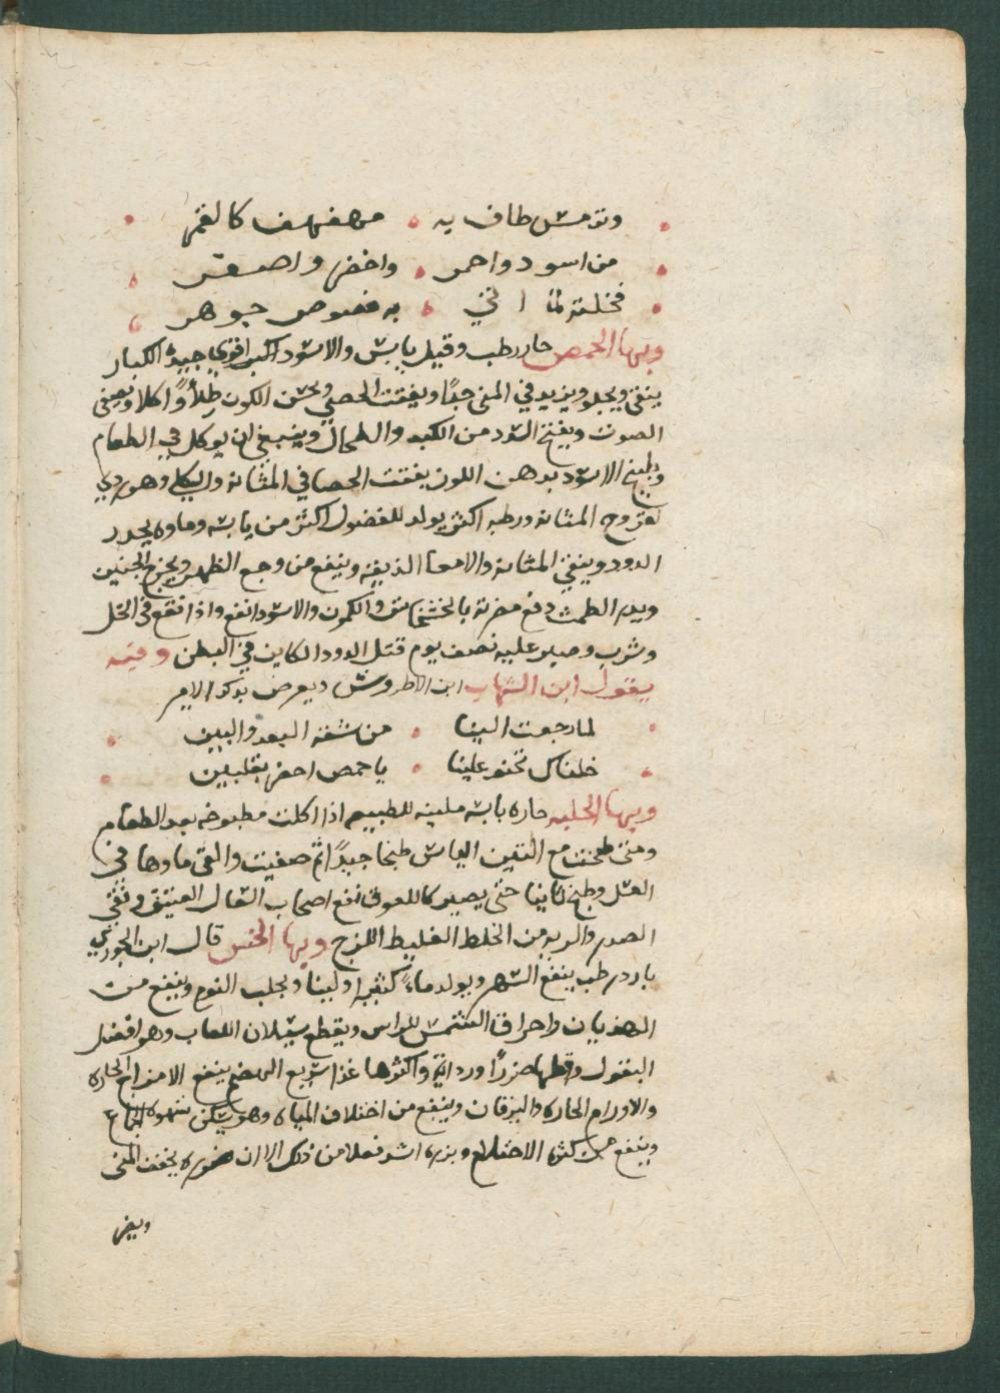 وترمش طاف به • مهفهف كالقمر
من اسود واحمر • واخضر واصفر
فخلته لما اتي • به فصوص جوهر
وبها الحمص حار رطب وقيل يابس والاسود اكبر اقوي جيده الكبار
ينقي ويجلو ويزيد في المني جدا ويفتت الحصي ويحسن اللون طلأ واكلا ويصفي
الصوت ويفتح السدد من الكبد والطحال وينبغي ان يوكل في الطعام
وطبيخ الاسود بدهن اللوز يفتت الحصا في المثانه والكلي وهو ردي
لقروح المثانه ورطبه اكثر يولد للفضول اكثر من يابسه وماوه يحدر
الدود وينقي المثانه والامعا الدقيقه وينفع من وجع الظهر ويخرج الجنين
ويدر الطمث دفع مضرته بالخشخاش والكمون والاسود انفع واذا نقع في الخل
وشرب وصبر عليه نصف يوم قتل الدود الكاين في البطن وفيه
يقول ابن الشهاب ابن الاطروش ويعرض بذكر الامير
لما رجعت الينا • من شقه البعد والبين
خلناك تحنو علينا • يا حمص اخضر بقلبين
وبها الحلبه حاره يابسه ملينه للطبيعه اذا اكلت مطبوخه بعد الطعام
ومتي طبخت مع التين اليابس طبخا جيدا ثم صفيت والقي ماوها في
العسل وطبخ ثانيا حتي يصير كاللعوق نفع اصحاب السعال العتيق ونقي
الصدر والريه من الخلط الغليظ اللزج وبها الخس قال ابن الجوزي
بارد رطب ينفع السهر ويولد ماء كثيرا ولبنا ويجلب النوم وينفع من
الهذيان واحراق الشمس للراس ويقطع سيلان اللعاب وهو افضل
البقول واقلها ضررا ورداه واكثرها غذا سريع الهضم ينفع الامزاج الحاره
والاورام الحاره واليرقان وينفع من اختلاف المياه وهو يسكن شهوه الجماع
وينفع من كثره الاحتلام وبزره اشد فعلا من ذلك الا ان ضرره يجفف المني
ويضر